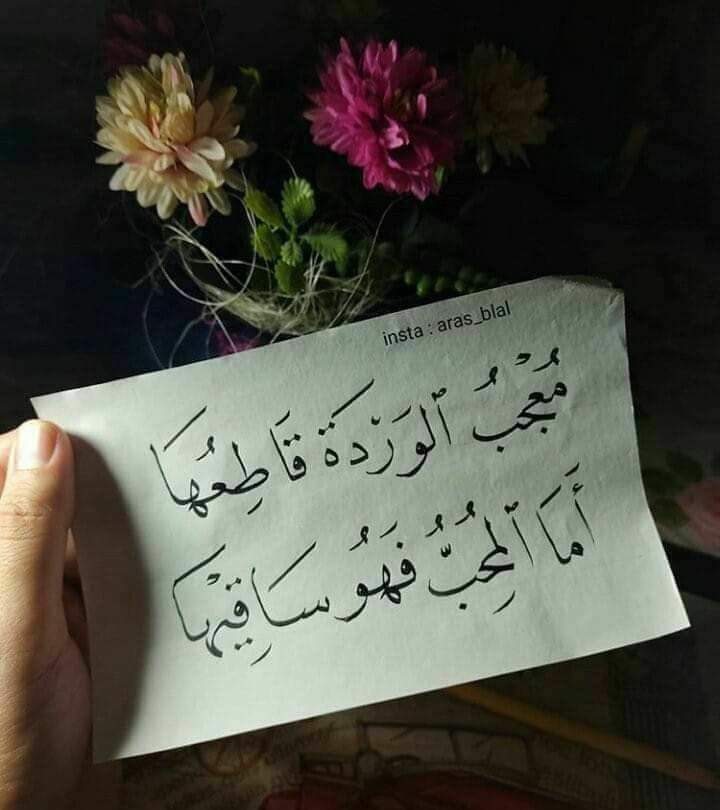 insta : aras_blal
مُعْجَبُ ٱلوَرْدَة قَاطِعُهَا
أَمَا ٱلمُحِبُّ فَهُو سَاقِيْهَا